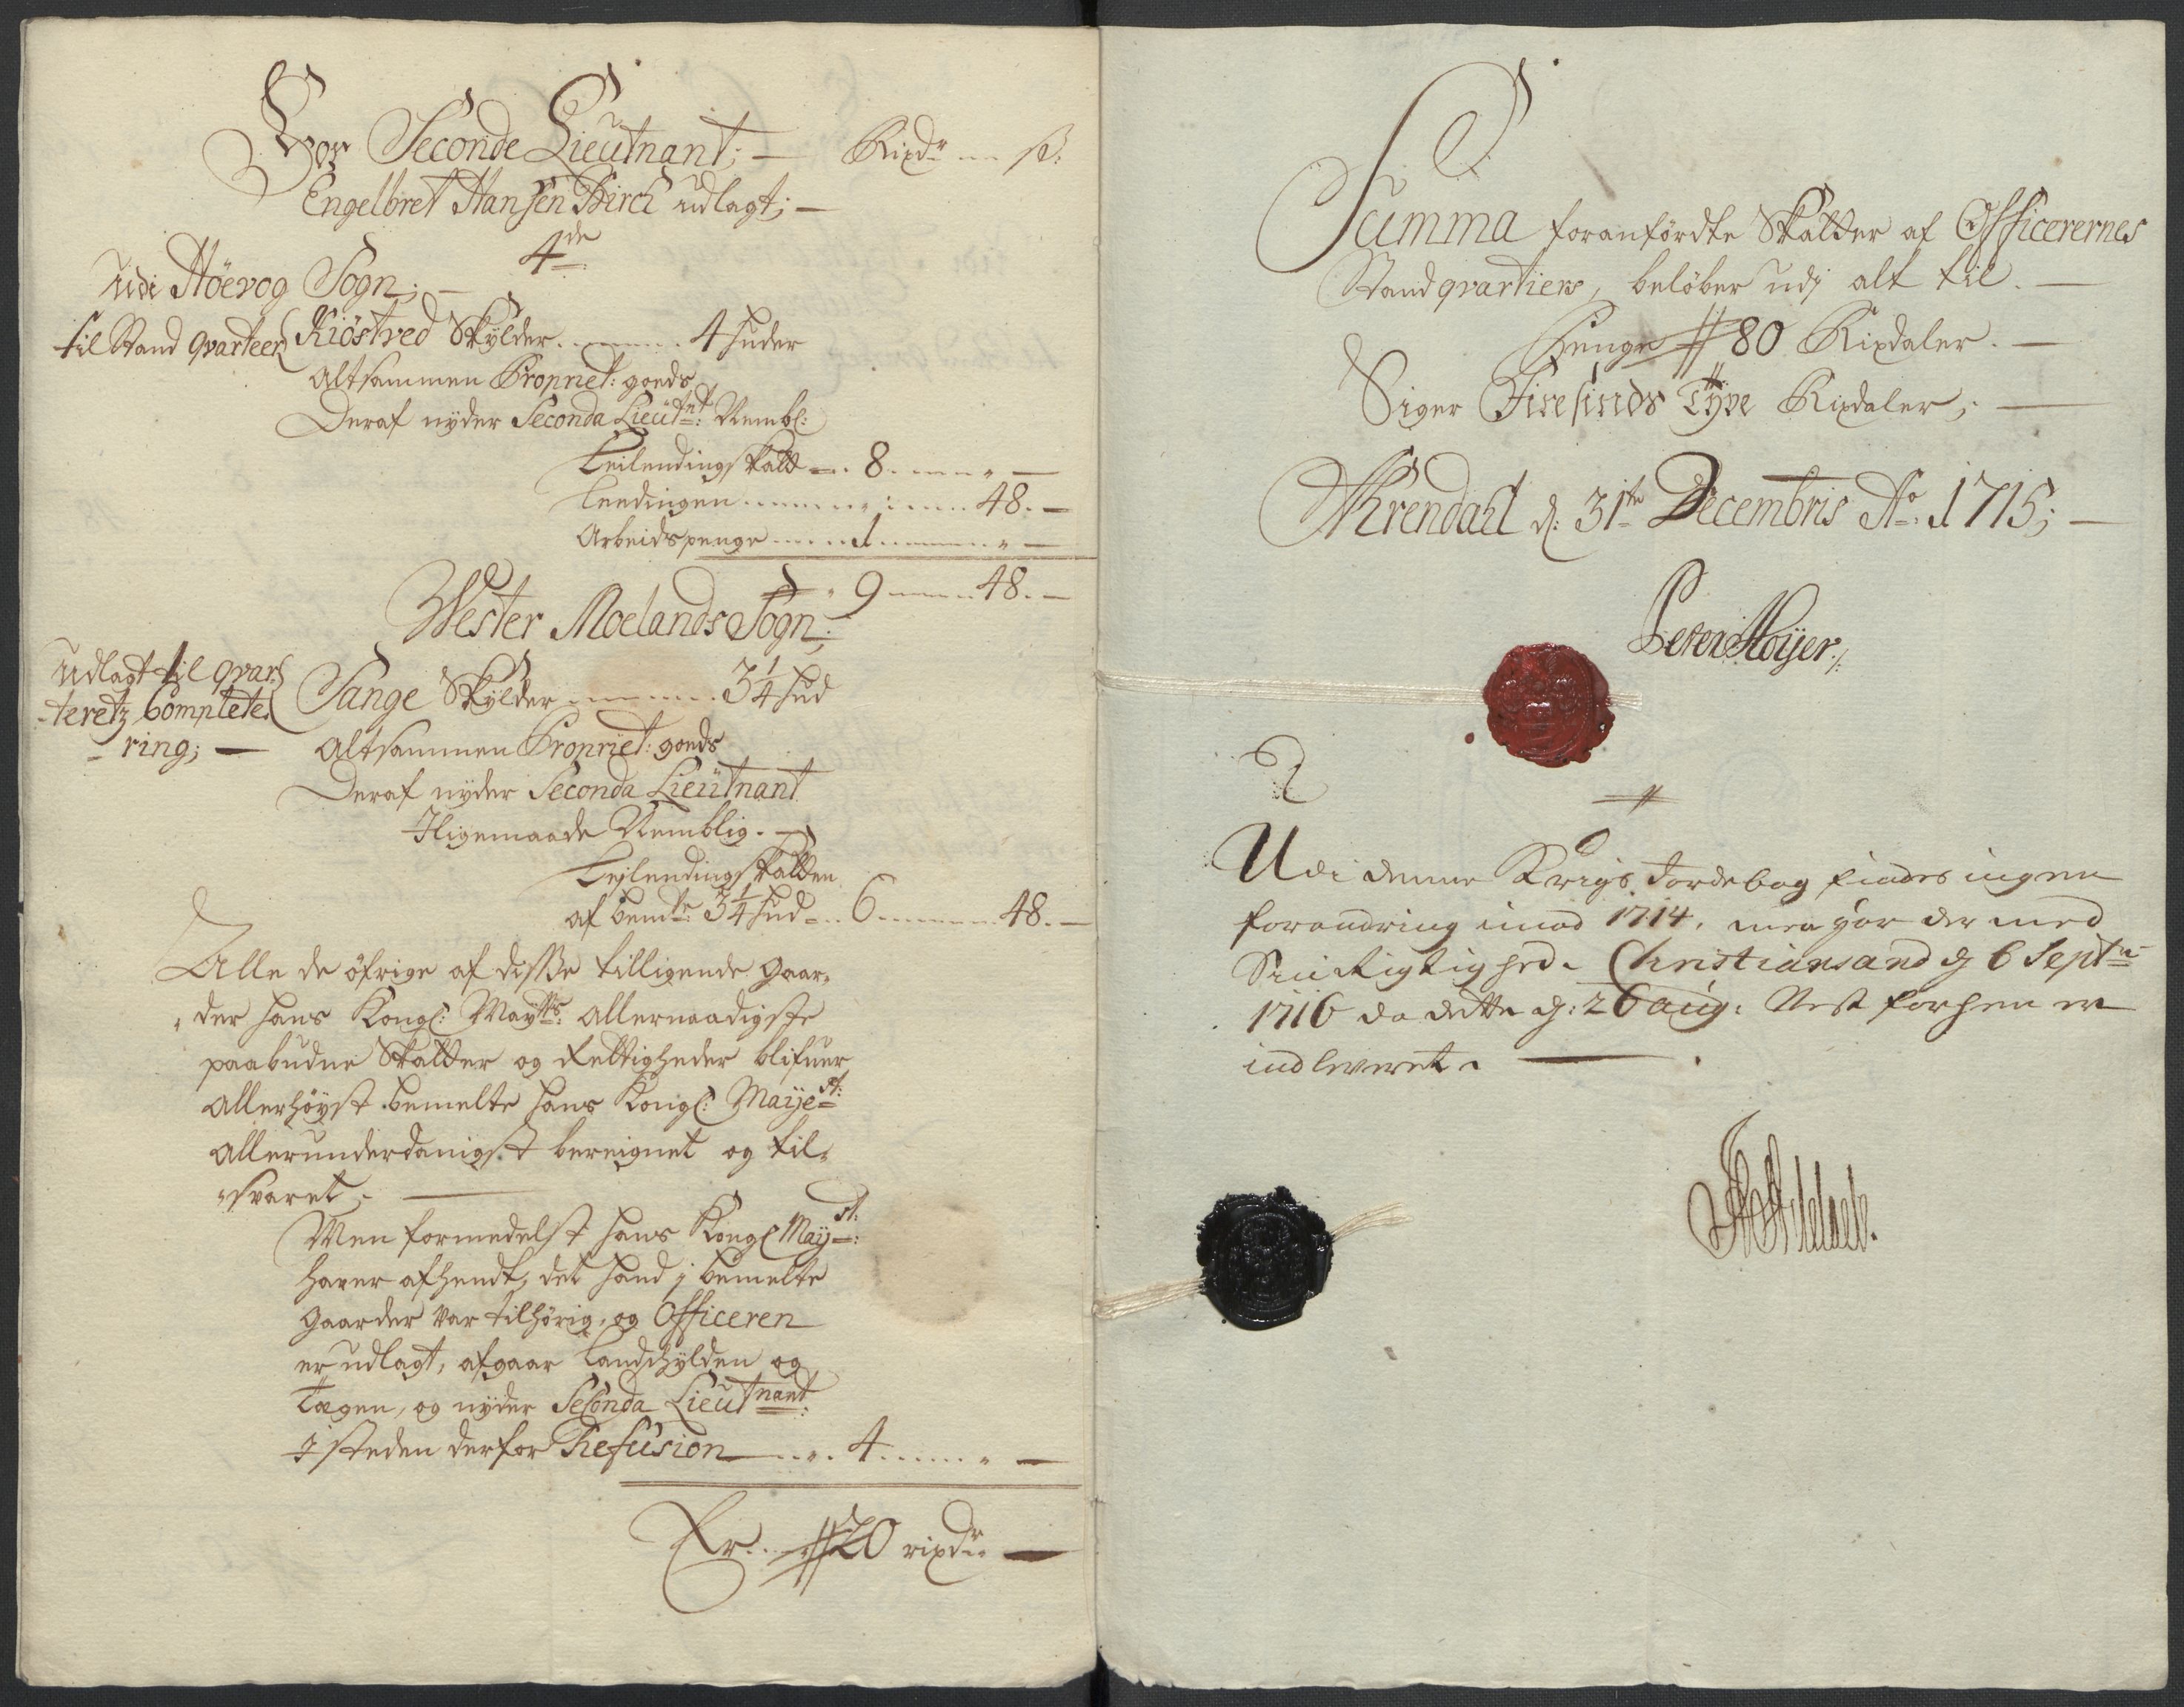 For Seconde Lieutnant; — Rixdr ß:
Engelbret Hansen Birch udlagt; —
4de
Udi Höevog Sogn; —
til Stand Qvarteer Kiöstved Skylder 4 huder
Altsammen Propriet: goeds
Deraf nyder Seconda Lieutnt: Nembl:
Leilendingskatt 8 " —
Leedingen 1 48. —
Arbeidspenge 1 " —
9 48. —
Wester Moelands Sogn;
Udlagt til qvar-
teretz Complete-
ring; —
Sange Skylder 3 1/4 hud
Altsammen Propriet: goeds
Deraf nyder Seconda Lieutnant
Iligemaade Nemblig. —
Leylendingskatten
af bemte: 3 1/4 hud 6 48. —
Alle de öfrige af disse tilligende gaar-
der hans Kongl: Maytts: allernaadigste
paabudne Skatter og Rettigheder blifuer
allerhöyst bemelte hans Kongl: Mayest:
allerunderdanigst beregnet og til-
svaret; —
Men formedelst hans Kongl Mayst:
hafver afhendt, det hand j bemelte
gaarder var tilhörig, og Officeren
er udlagt, afgaar Landschylden og
Tagen, og nyder Seconda Lieutnant:
I steden derfor Refusion 4 " —
Er 20 rixdr —
Summa foranfördte Skatter af Officerernes
Standqvartiers, belöber udj alt til. —
Penge 80 Rixdaler. —
Siger Firesinds Tyve Rixdaler; —
Ahrendahl d: 31te Decembris Ao 1715; —
Peter Hoyer
Udi denne Krigs Jordebog findes ingen
forandring imod 1714, men gör der med
Rigtighed. Christiansand d 6 Septr
1716 da dette d: 26 aug: Nest forhen er
indleveret. —